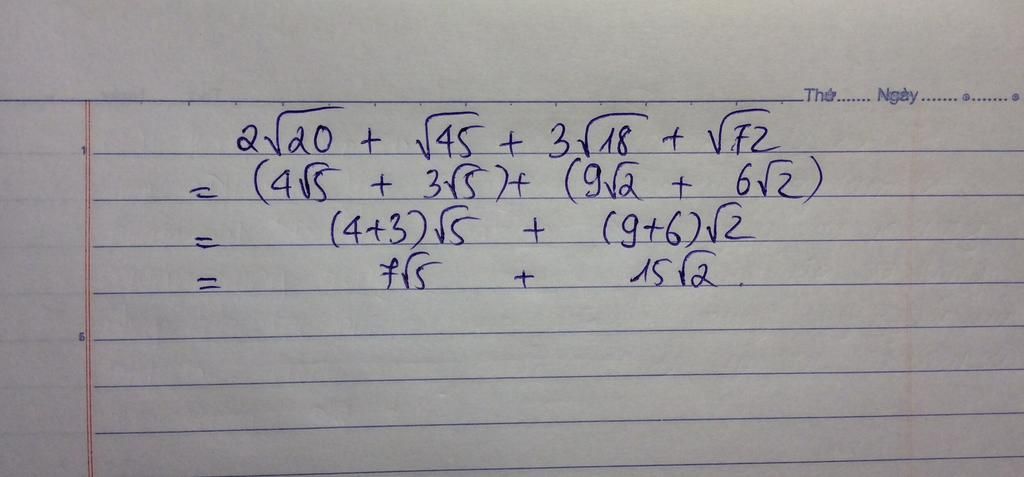 Thứ....... Ngày ....... ........
1
2√20 + √45 + 3√18 + √72
= (4√5 + 3√5) + (9√2 + 6√2)
= (4+3)√5 + (9+6)√2
= 7√5 + 15√2.
5